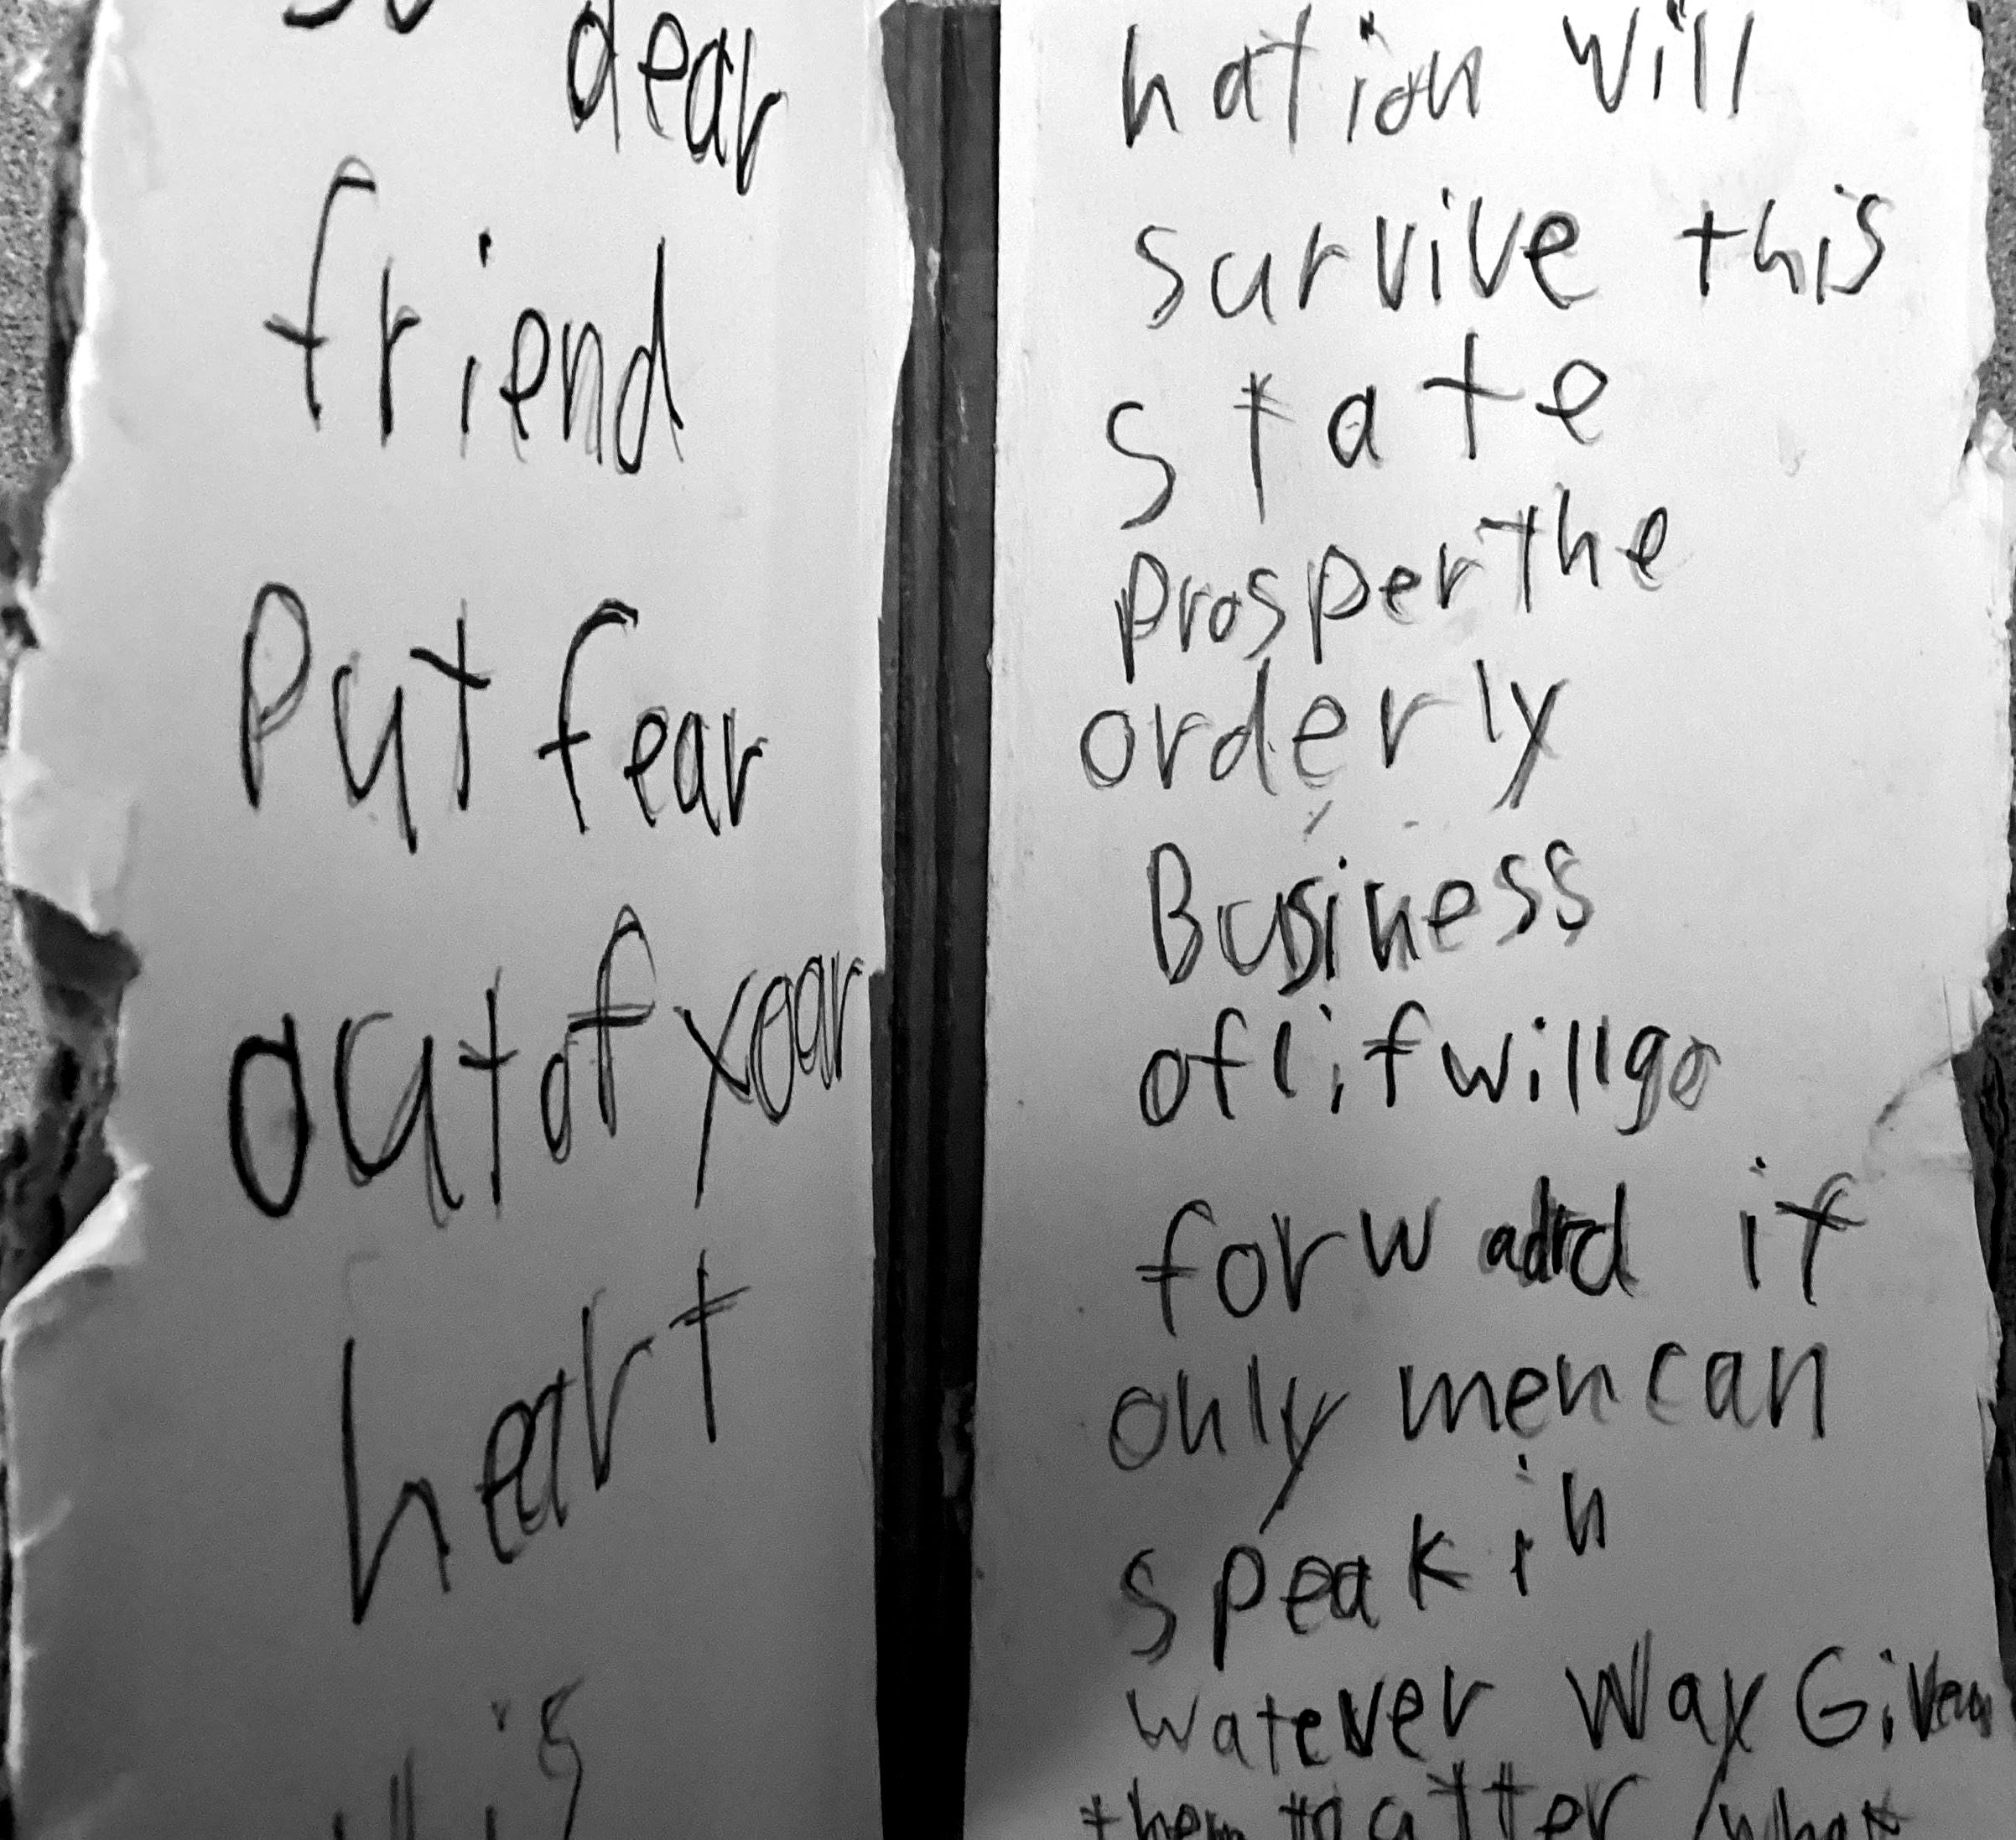 so dear
friend
Put fear
out of your
heart
this
nation will
survive this
state
prosper the
orderly
Business
of lif will go
forward if
only men can
speak in
watever way Given
them to utter what